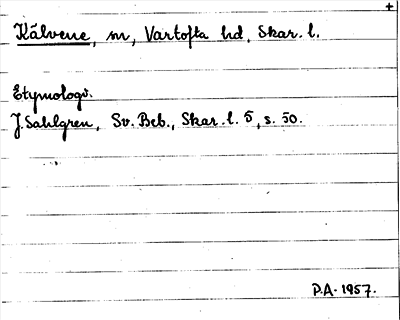 +
Kälvene, m, Vartofta hd, Skar. l.
Etymologi.
J. Sahlgren, Sv. Beb., Skar. l. 5, s. 50.
P.A. 1957.